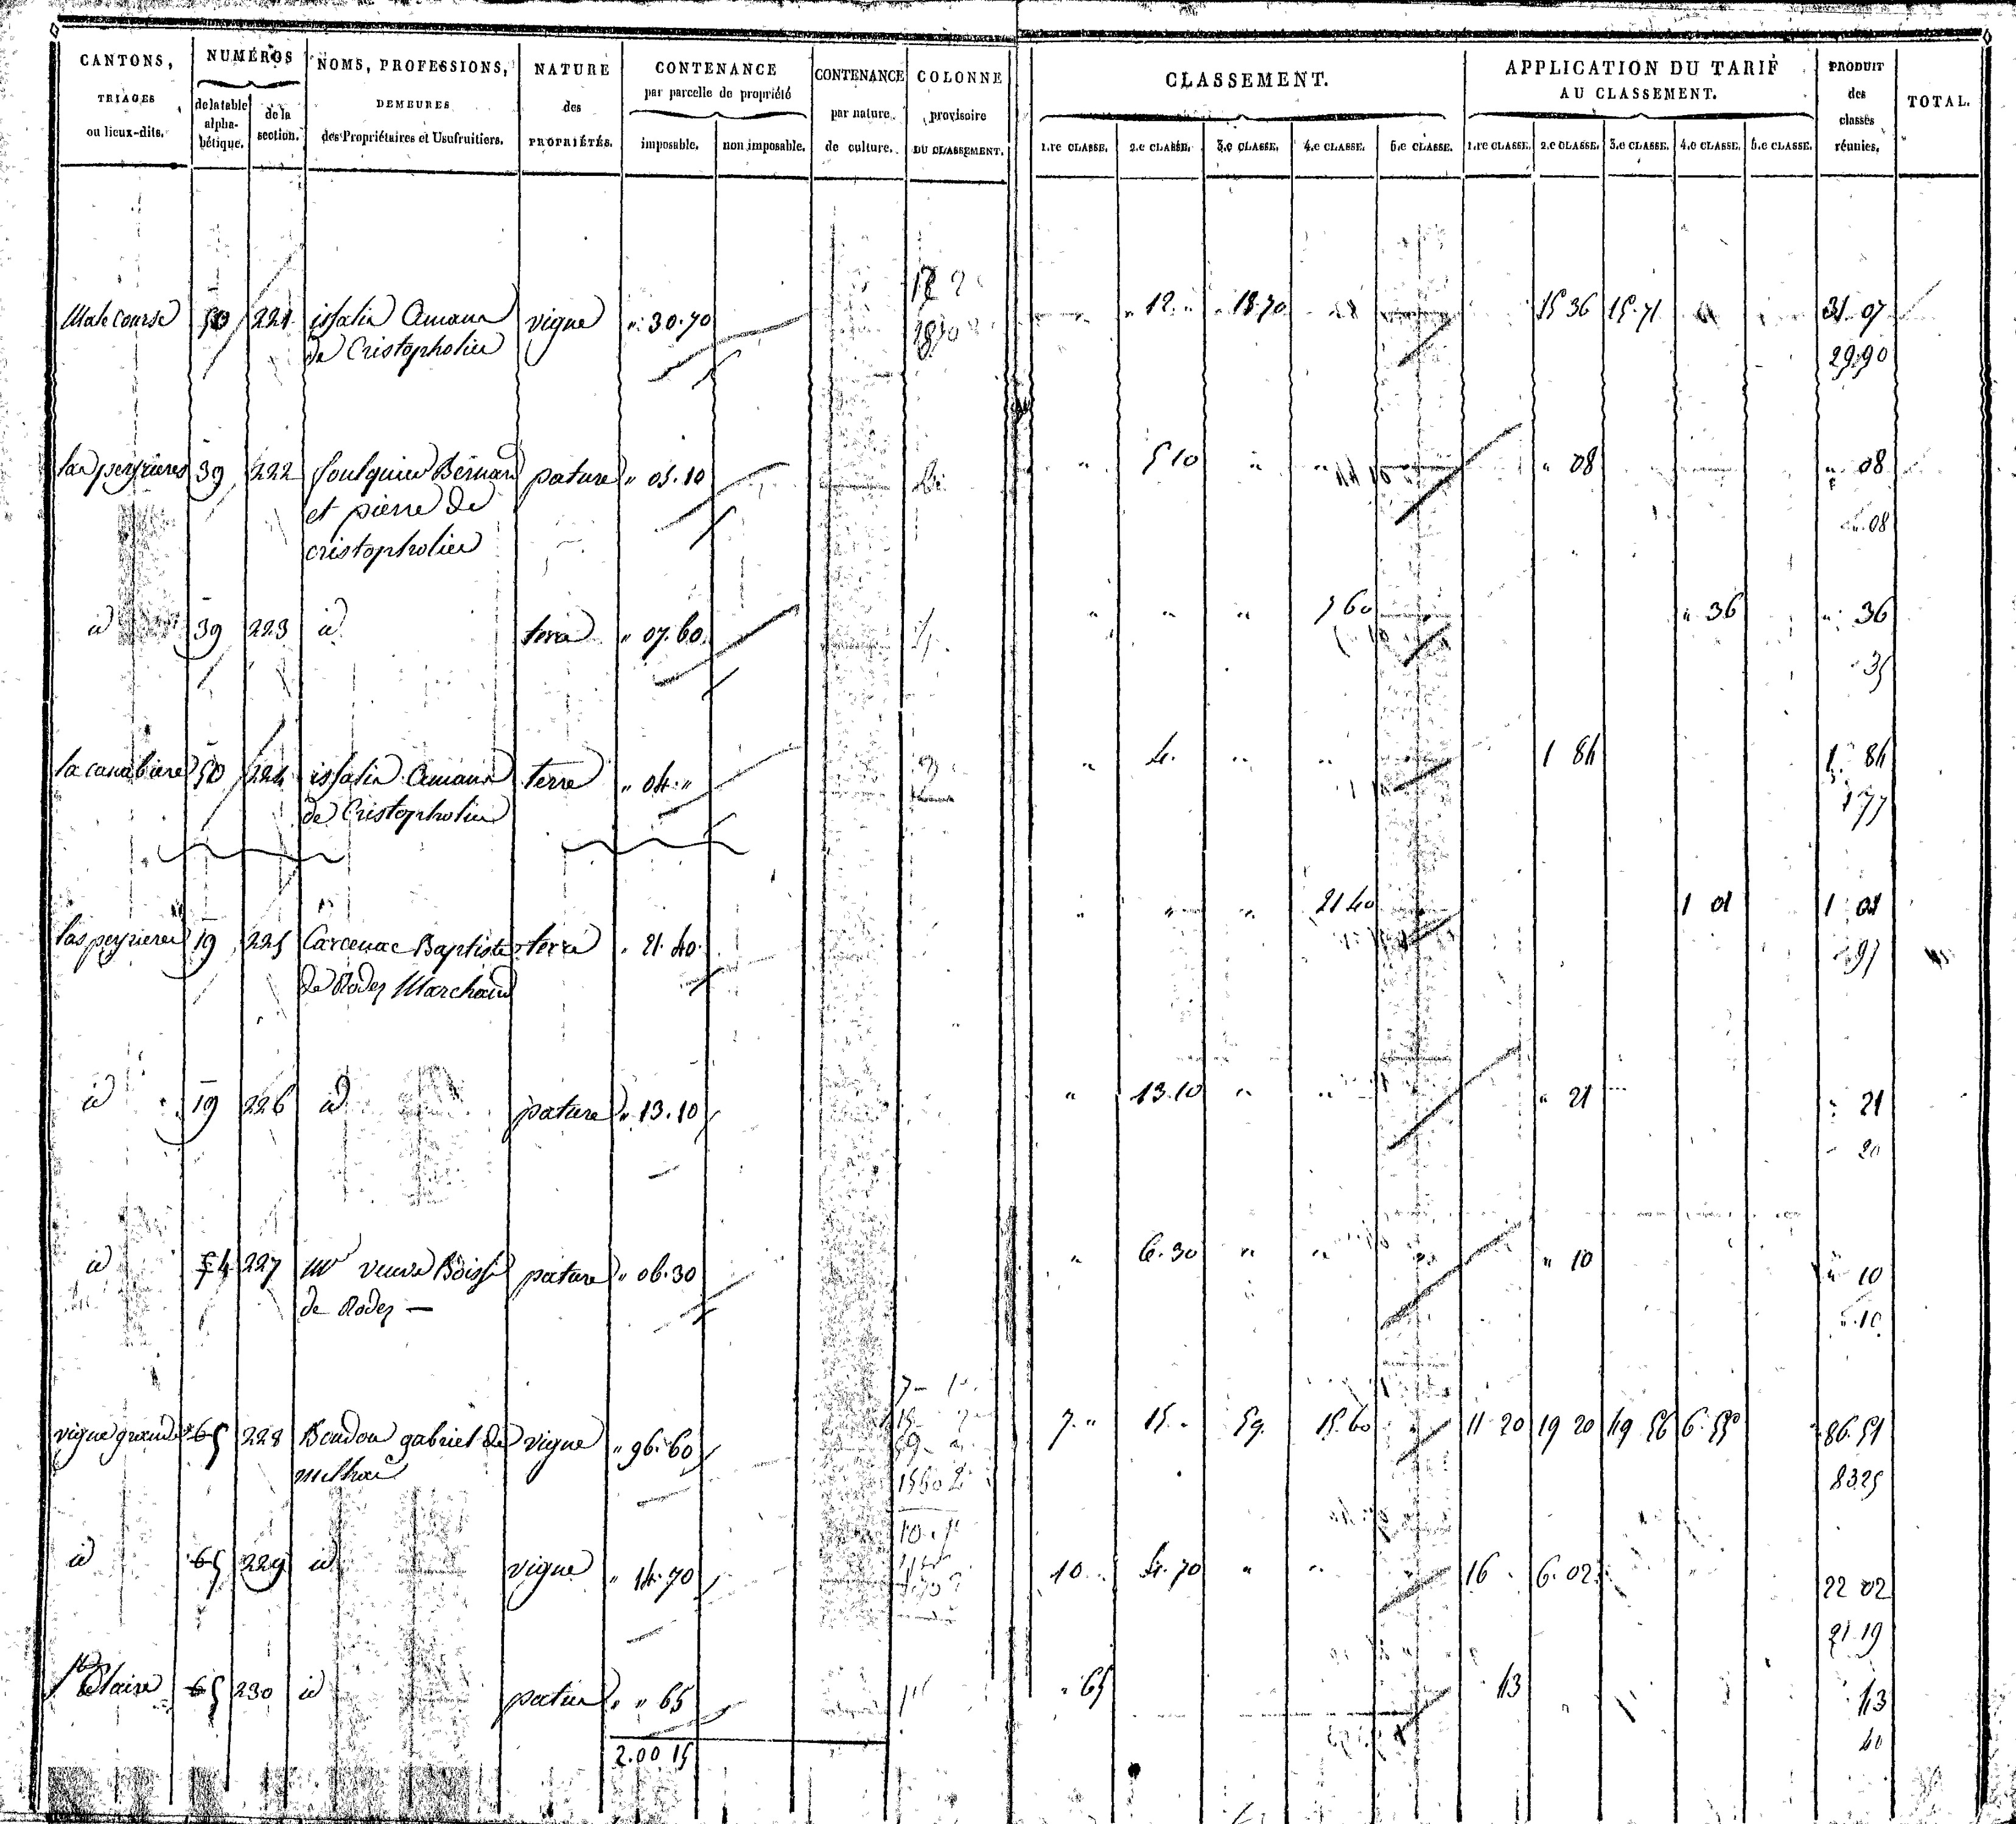 CANTONS, TRIAGES ou lieux-dits.
NUMÉROS de la table alpha-bétique. de la section.
NOMS, PROFESSIONS, DEMEURES des Propriétaires et Usufruitiers.
NATURE des PROPRIÉTÉS.
CONTENANCE par parcelle de propriété imposable. non imposable.
CONTENANCE par nature de culture.
COLONNE provisoire DU CLASSEMENT.
CLASSEMENT. 1.re CLASSE. 2.e CLASSE. 3.e CLASSE. 4.e CLASSE. 5.e CLASSE.
APPLICATION DU TARIF AU CLASSEMENT. 1.re CLASSE. 2.e CLASSE. 3.e CLASSE. 4.e CLASSE. 5.e CLASSE.
PRODUIT des classes réunies.
TOTAL.
Malecourse 50 221 issalin Amans vigne " 30.70 " 12. " " 18.70 15 36 15.71 31 07
de Cristopholier 29.90
las peyrieres 39 222 foulquier Bernard pature " 05.10 " 5 10 " " " 08 " 08
et pierre de " 08
cristopholier
id 39 223 id terre " 07.60 " " " 7 60 " 36 " 36
35
la canabiere 50 224 issalin Amans terre " 04 " " 4. " " 1 84 1 84
de Cristopholier 1 77
las peyrieres 19 225 Carcenac Baptiste terre " 21.40 " " " 21 40 1 01 1 01
de Rodez Marchand 97
id 19 226 id pature " 13.10 " 13.10 " " " 21 " 21
" 20
id 227 veuve Boisse pature " 06.30 " 6.30 " " " 10 " 10
de Rodez — " 10
vigne grande 65 228 Boudou gabriel de vigne " 96.60 7. " 15. " 59. 15.60 11 20 19 20 49 56 6.55 86.51
milhau 83.25
id 65 229 id vigne " 14.70 10 " 4.70 " " 16 " 6.02 22 02
21.19
Ste Claire 65 230 id pature " " 65 " 65 " 13 13
2.00 15